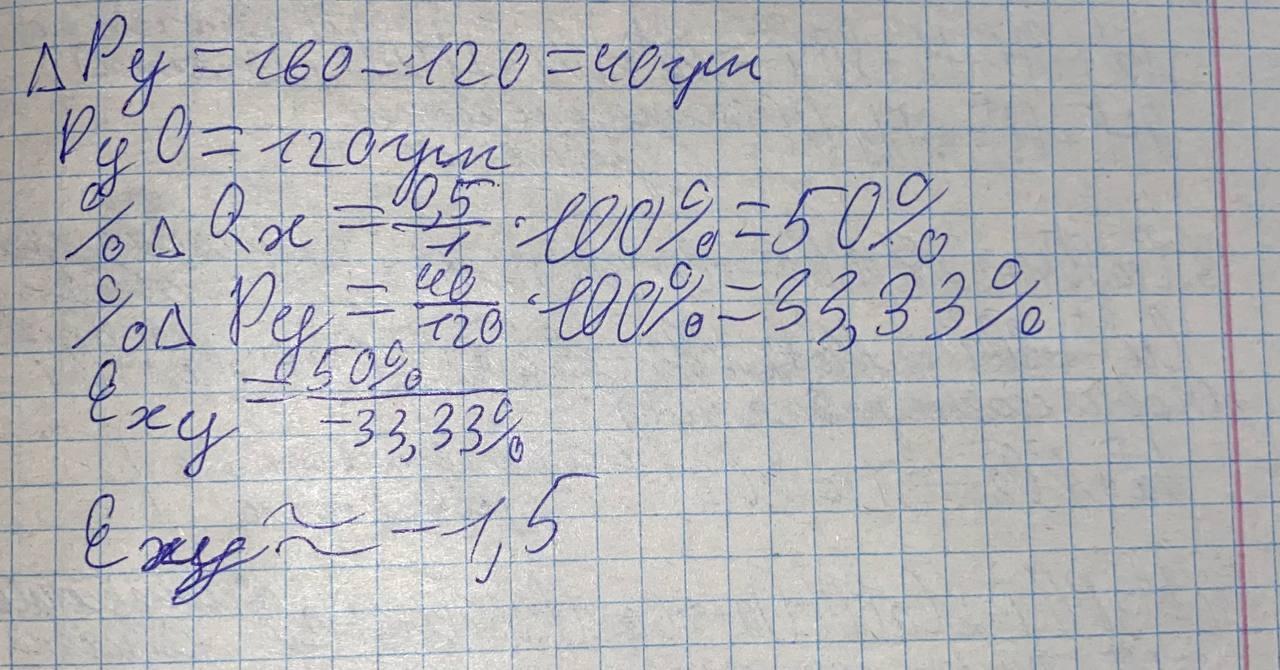 Δ Py = 160 - 120 = 40грн
Py0 = 120грн
% Δ Qx = 0,5/1 · 100% = 50%
% Δ Py = 40/120 · 100% = 33,33%
Exy = 50%/-33,33%
Exy ≈ -1,5